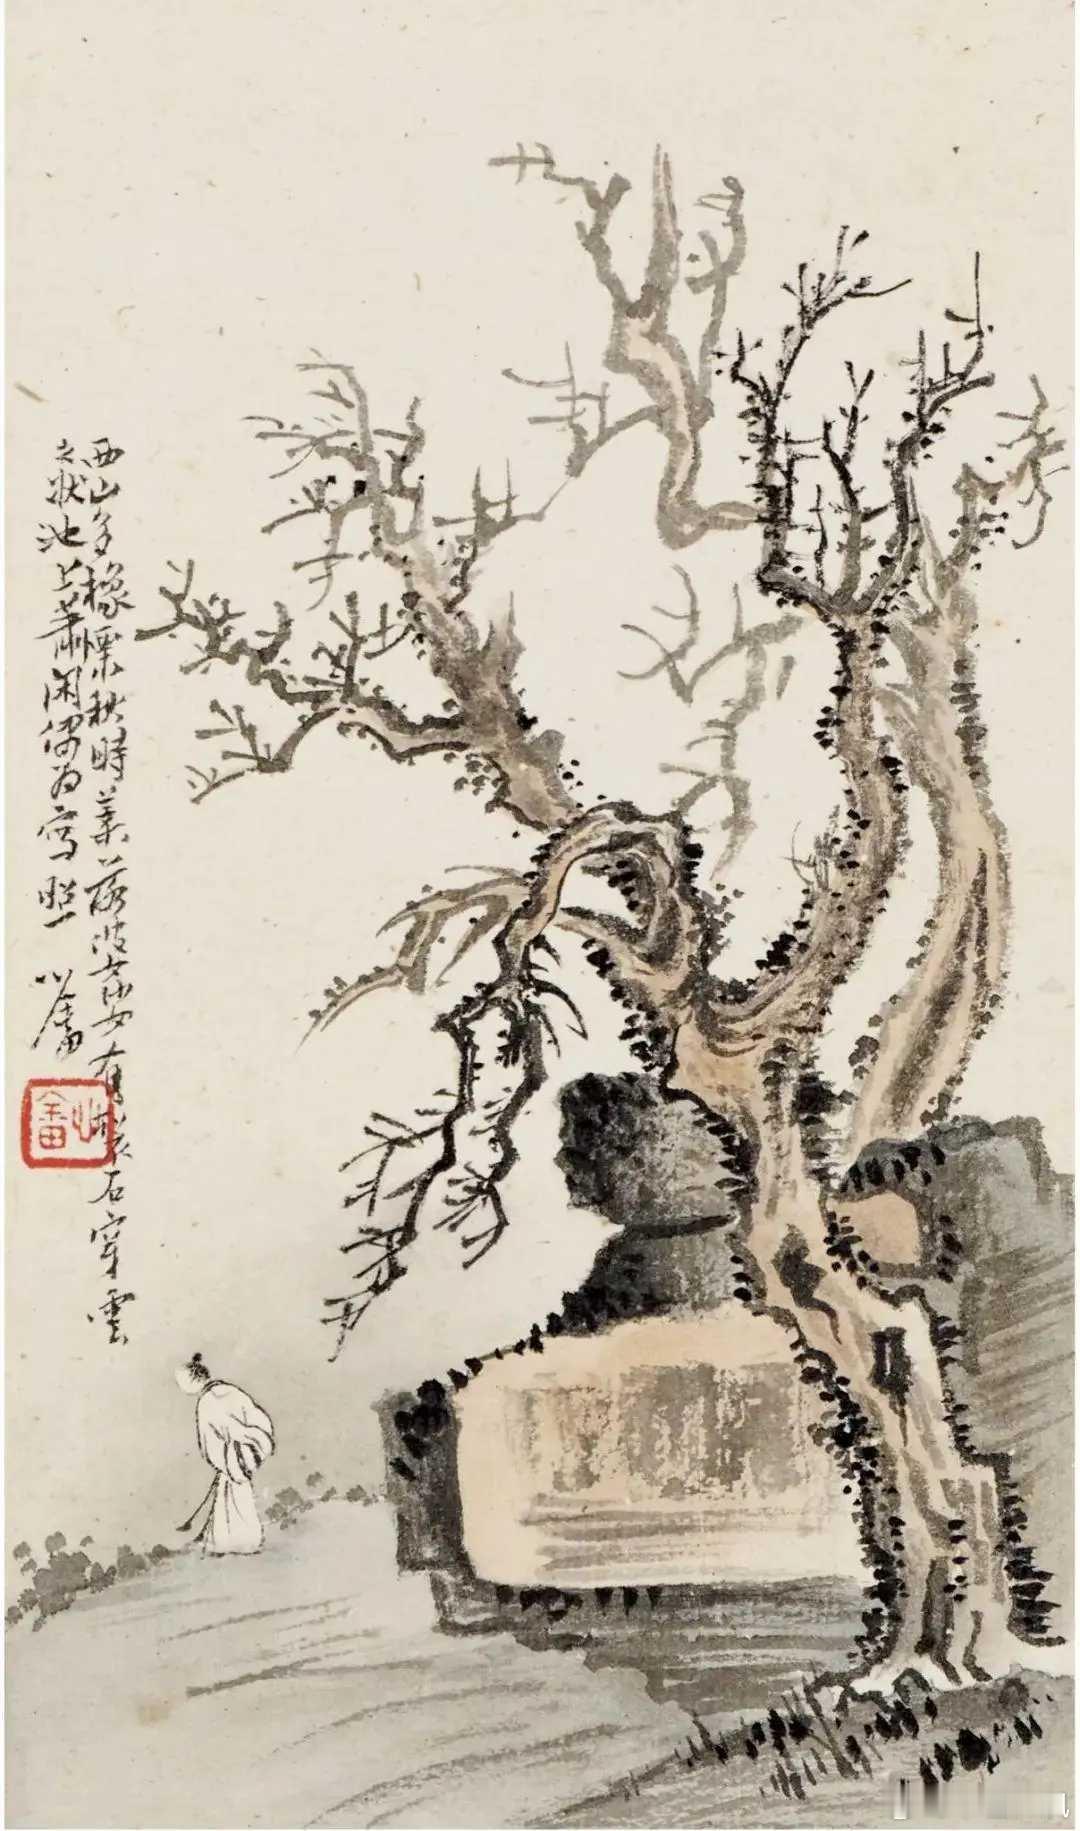 西山多橡栗秋時葉落有石穿雲
之狀池上蕭閑偶為寫照 心畬
心畬